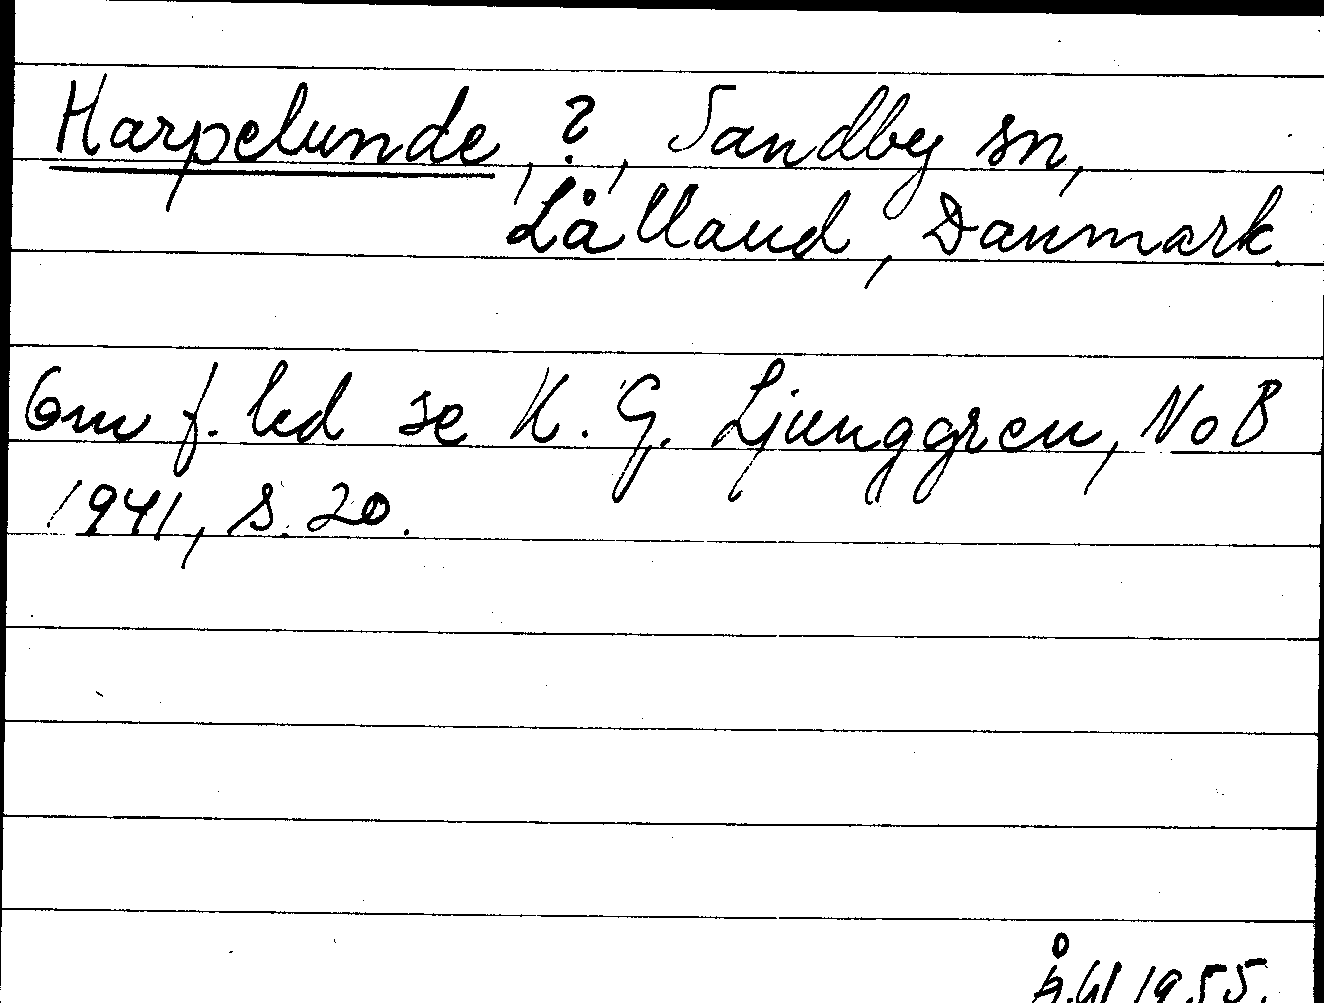 Harpelunde, ?, Sandby sn,
Lålland, Danmark.
Om f. led se K. G. Ljunggren, NoB
1941, s. 20.
1955.